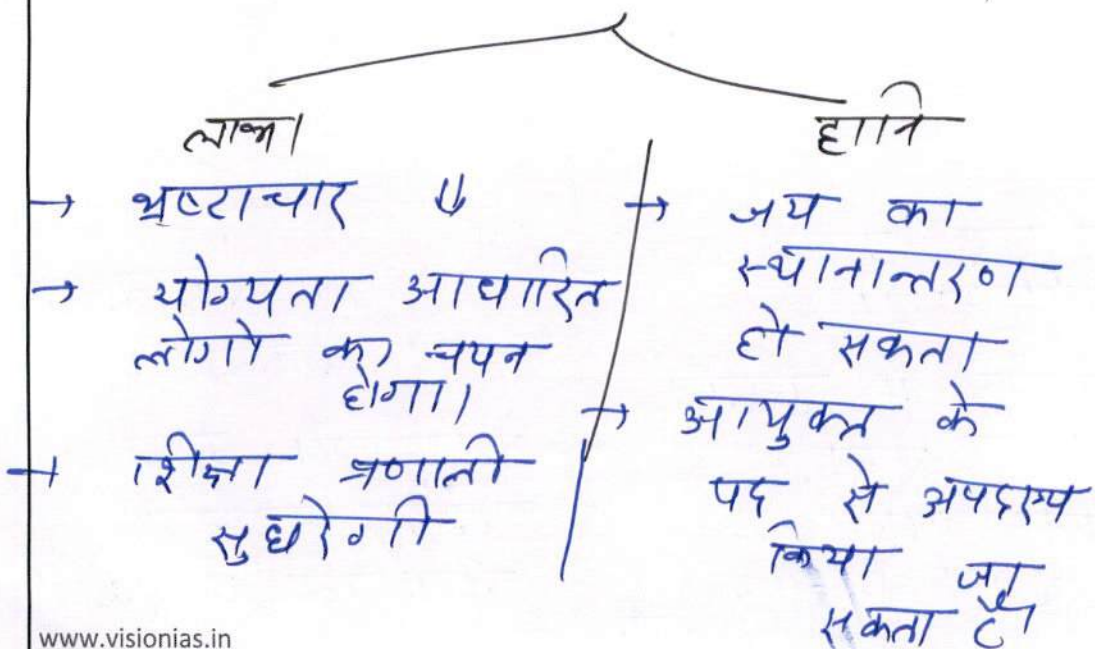 लाभ।
→ भ्रष्टाचार ⇓
→ योग्यता आधारित
लोगो का चयन
होगा।
→ शिक्षा प्रणाली
सुधरेगी
हानि
→ जय का
स्थानान्तरण
हो सकता
→ आयुक्त के
पद से अपदस्थ
किया जा
सकता है
www.visionias.in